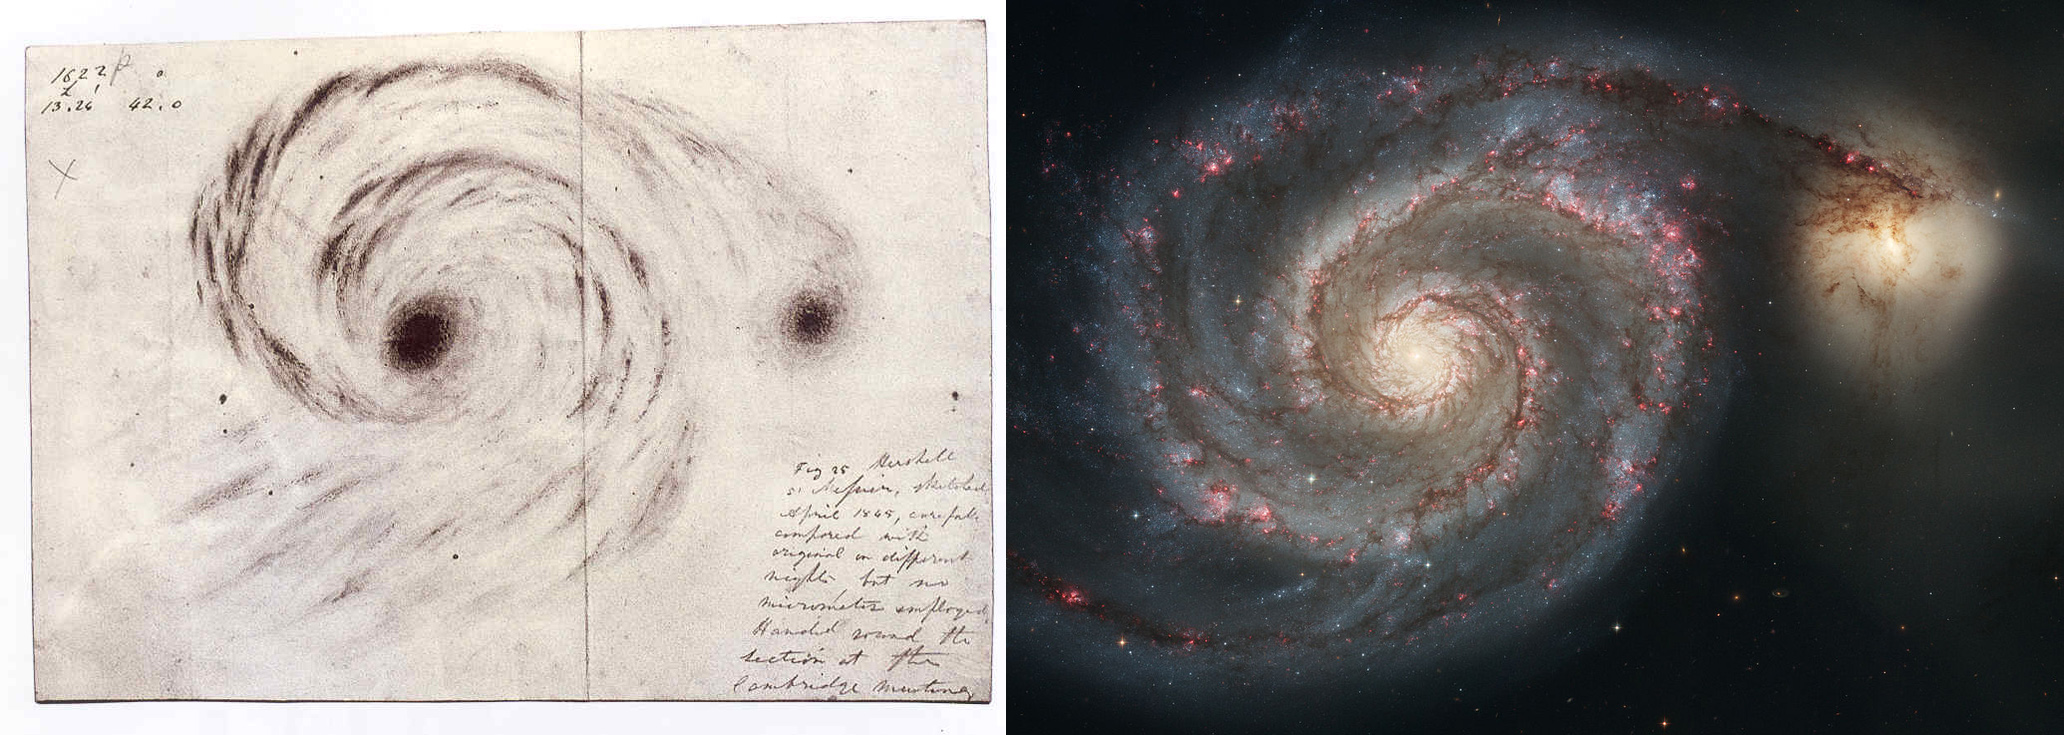 1622
13.26 42.0
Fig 25 Herschell
sketched
April 1845, careful.
compared with
original on different
nights but no
micrometer employed
Handed round the
section at the
Cambridge meeting